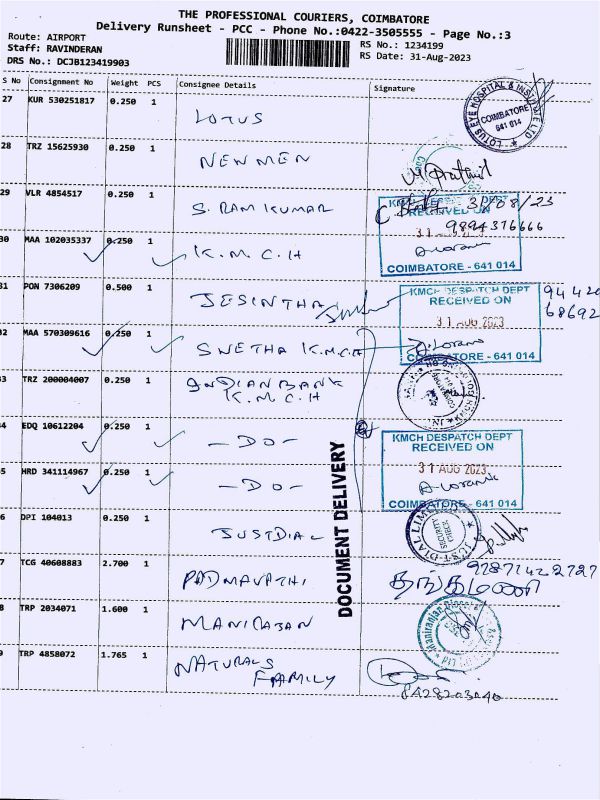 THE PROFESSIONAL COURIERS, COIMBATORE
Delivery Runsheet - PCC - Phone No.:0422-3505555 - Page No.:3
Route: AIRPORT
RS No.: 1234199
Staff: RAVINDERAN
RS Date: 31-Aug-2023
DRS No.: DCJB123419903
S No Consignment No Weight PCS Consignee Details Signature
27 KUR 530251817 0.250 1 LOTUS
LOTUS EYE HOSPITAL & INSTITUTE LTD
COIMBATORE
641 014
28 TRZ 15625930 0.250 1 NEWMEN
29 VLR 4854517 0.250 1 S. RAM KUMAR
31/08/23
9894376666
KMCH DESPATCH DEPT
RECEIVED ON
COIMBATORE - 641 014
30 MAA 102035337 0.250 1 K.M.C.H
31 PON 7306209 0.500 1 JESINTHA
KMCH DESPATCH DEPT
RECEIVED ON
31 AUG 2023
COIMBATORE - 641 014
94420
68692
32 MAA 570309616 0.250 1 SWETHA K.M.C.H
33 TRZ 200004007 0.250 1 INDIAN BANK
K.M.C.H
34 EDQ 10612204 0.250 1 -DO-
KMCH DESPATCH DEPT
RECEIVED ON
31 AUG 2023
COIMBATORE - 641 014
35 HRD 341114967 0.250 1 -DO-
DOCUMENT DELIVERY
6 DPI 104013 0.250 1 JUSTDIAL
JUST-DIAL LIMITED
SECURITY
CHECK
7 TCG 40608883 2.700 1 PADMAVATHI
தங்கமணி
8 TRP 2034071 1.600 1 MANIRAJAN
9 TRP 4858072 1.765 1 NATURALS
FAMILY